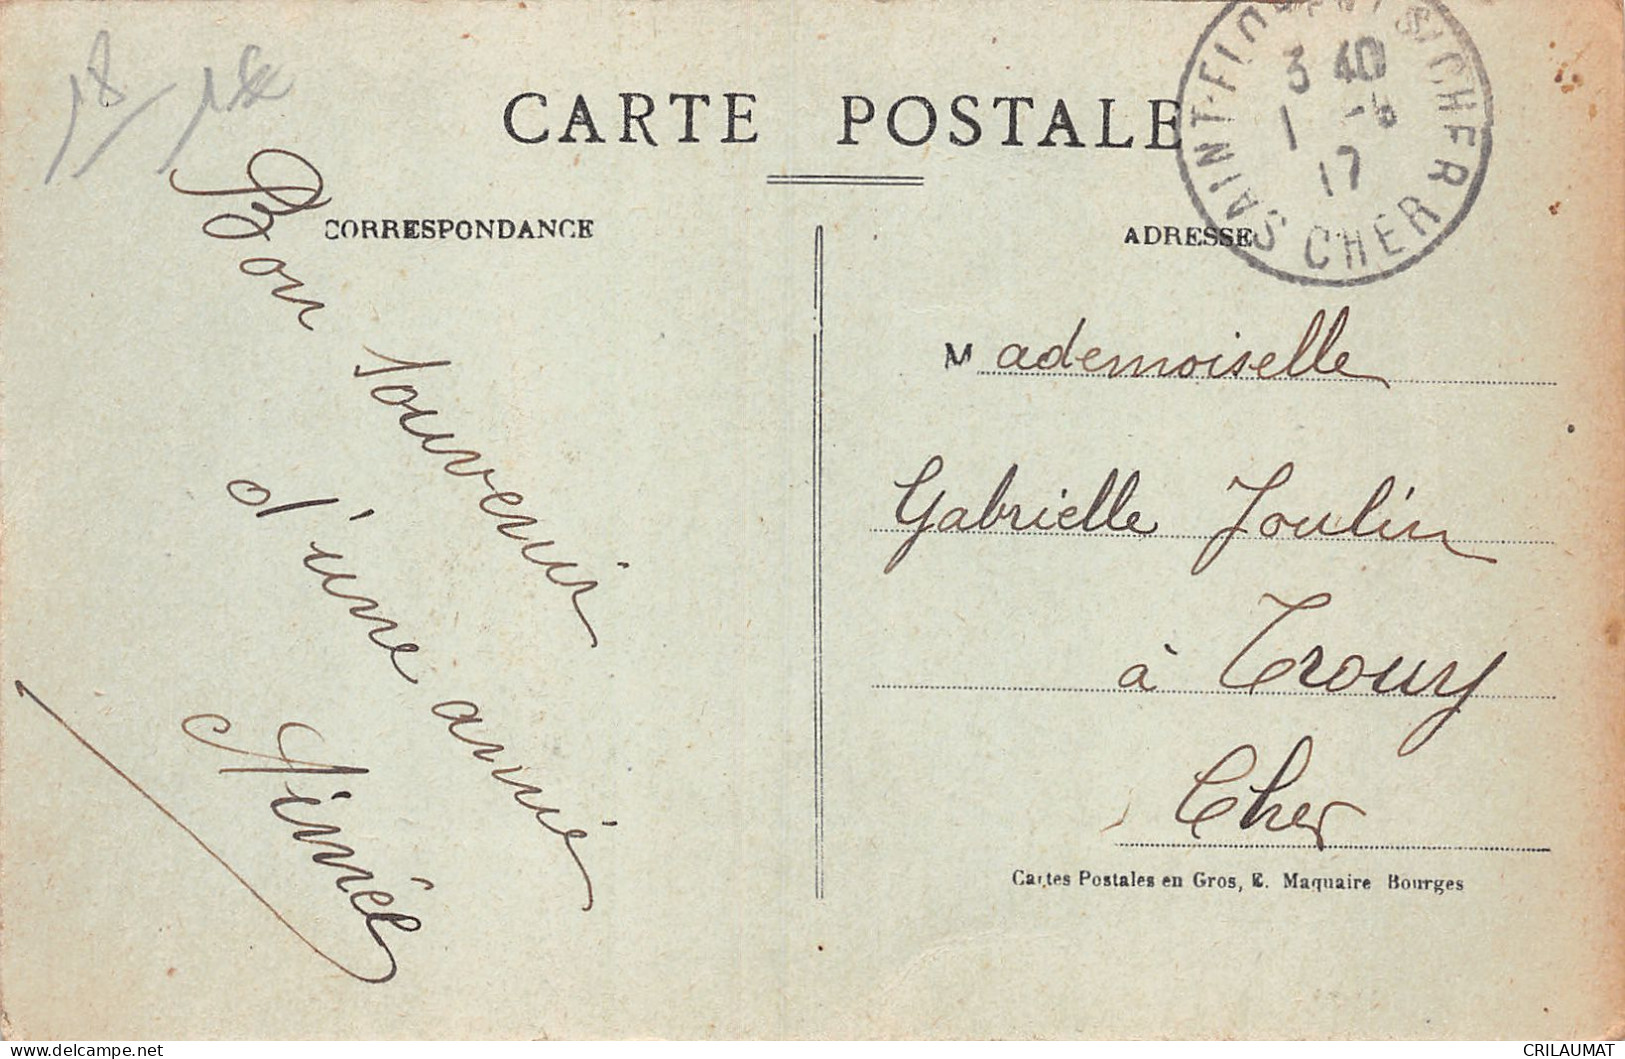 18 18
CARTE POSTALE
SAINT-FLORENT S/ CHER
CHER
3 40
1 -5
17
CORRESPONDANCE
ADRESSE
Bon souvenir
d'une amie
Aimée
Mademoiselle
Gabrielle Joulin
à Trouy
Cher
Cartes Postales en Gros, E. Maquaire Bourges
CRILAUMAT